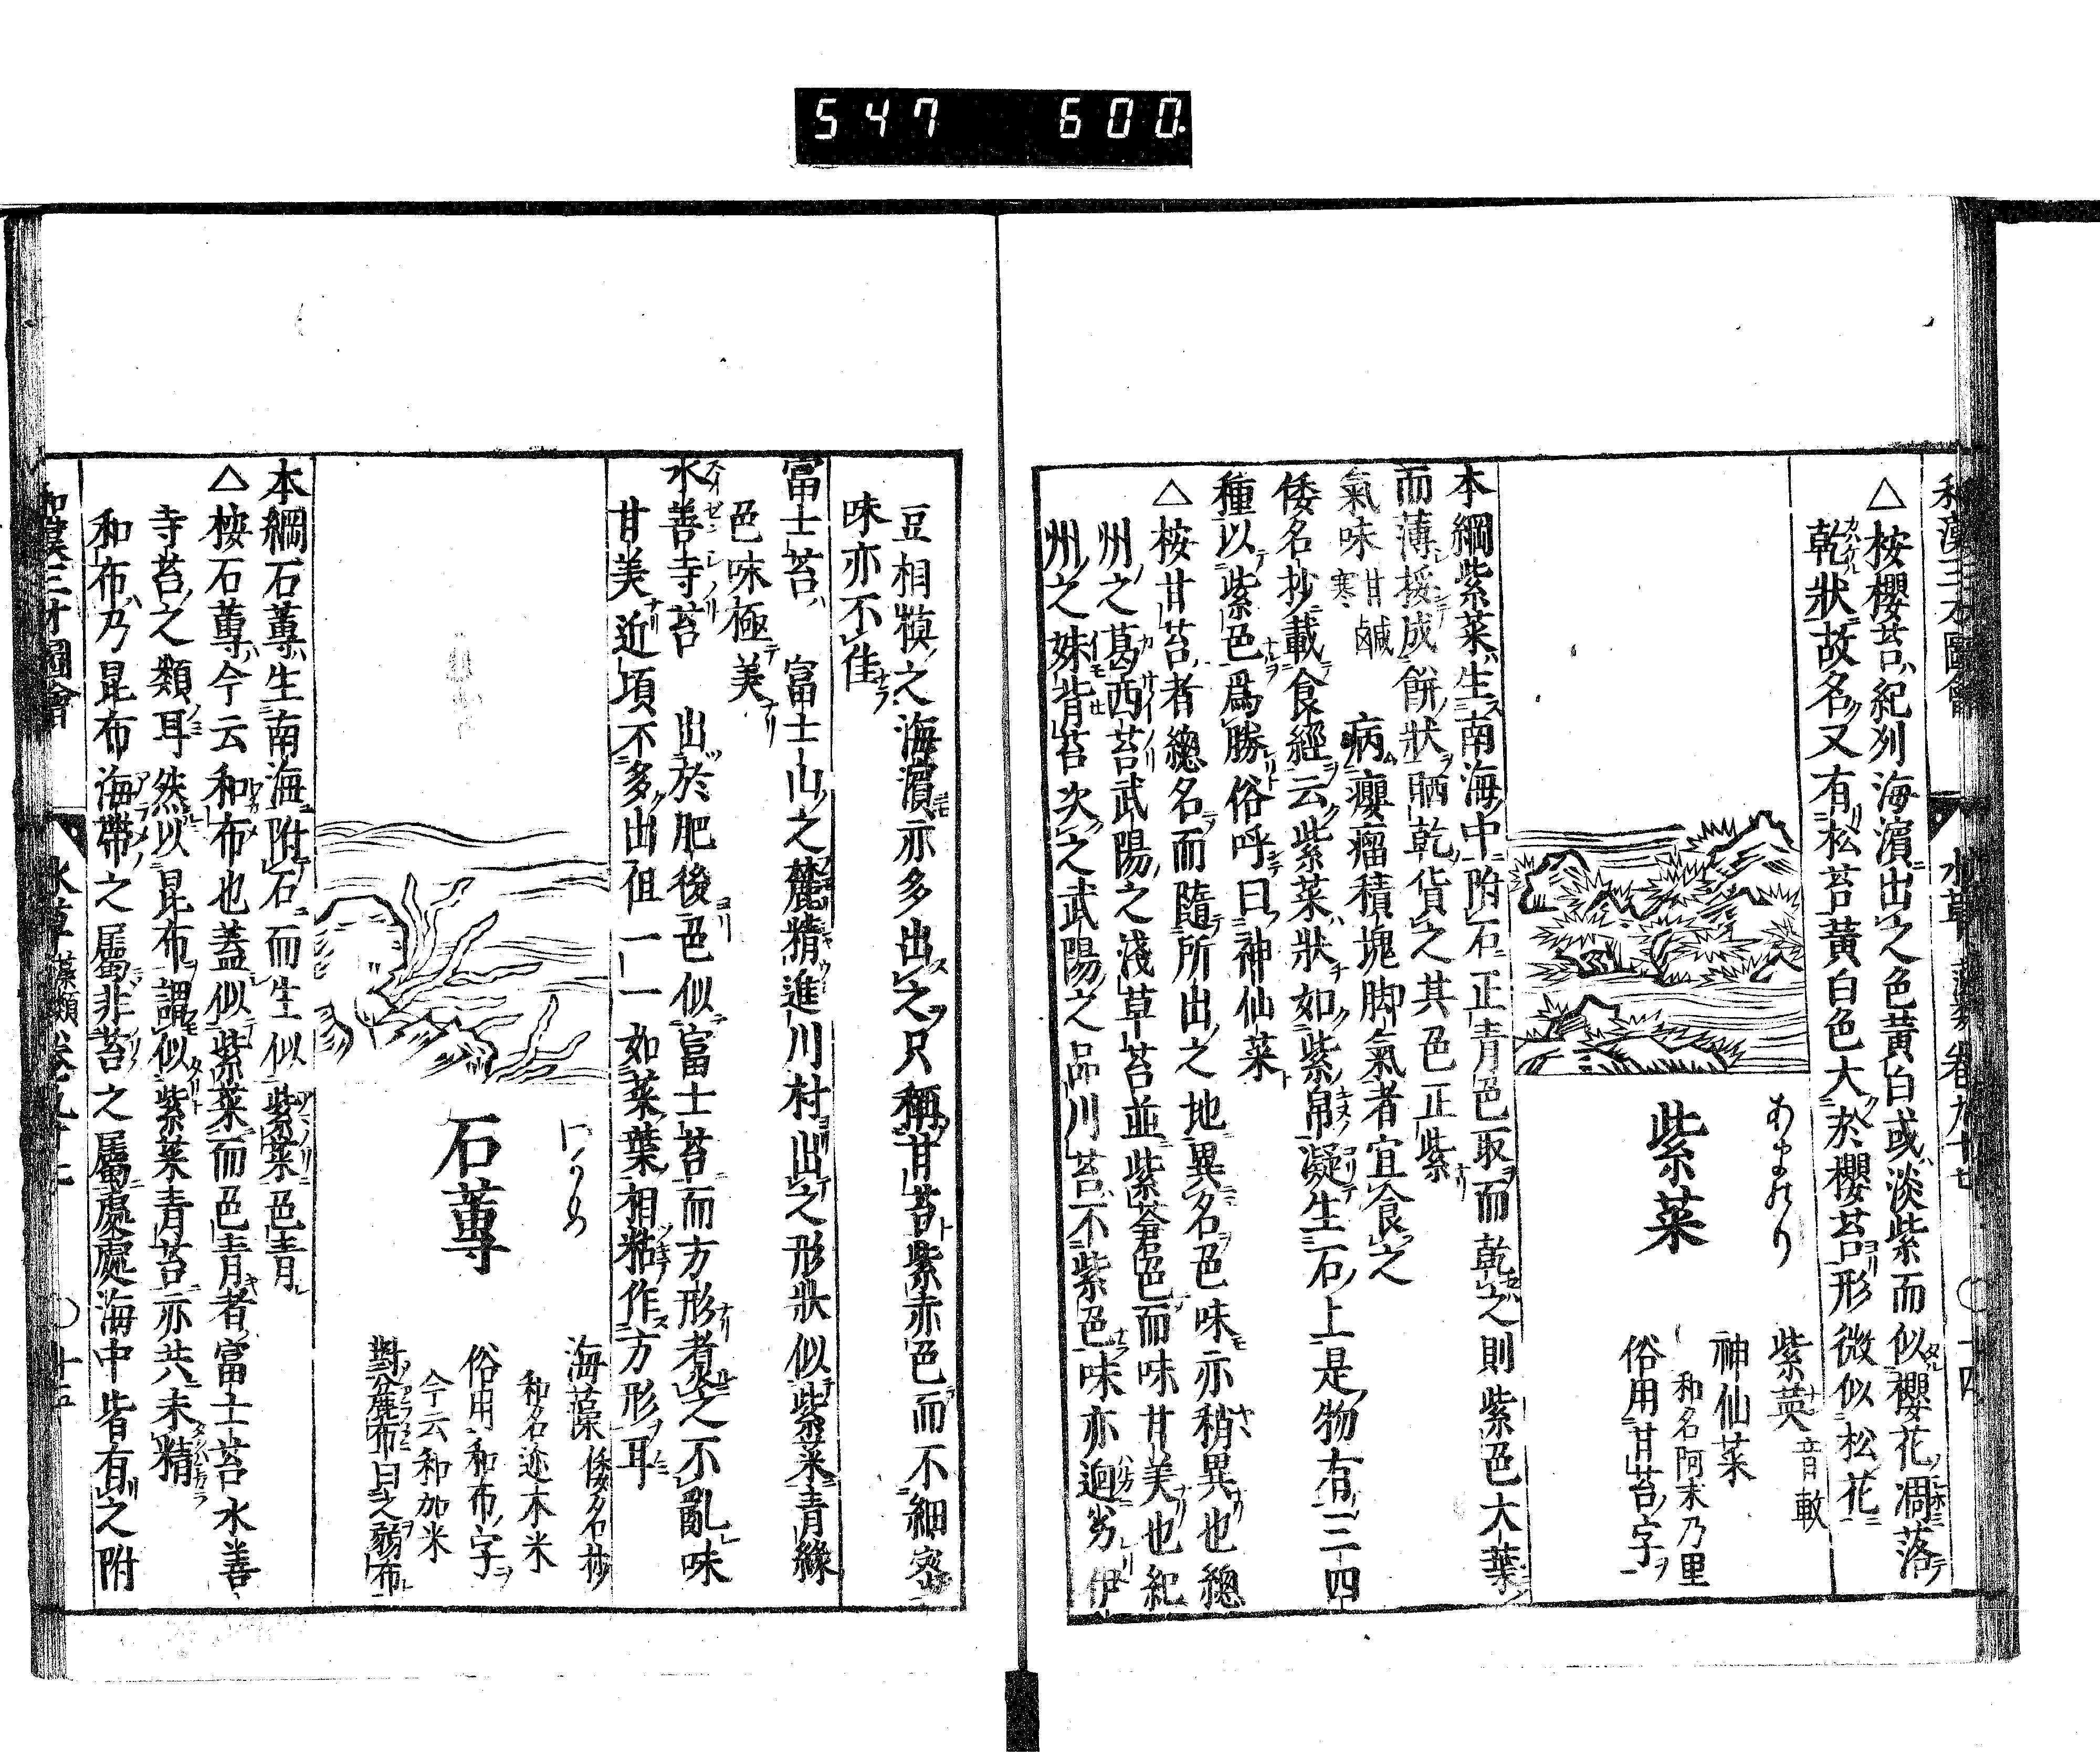 547 600.
和漢三才圖會 水草 藻類 卷九十七 ○ 十四
△桉櫻苔紀州海濵出之色黃白或淡紫而似櫻花凋落
乾狀故名又有松苔黃白色大於櫻苔形微似松花
紫菜
あまのり
紫䓹 音軟
神仙菜
和名阿末乃里
俗用甘苔字
本綱紫菜生南海中附石正青色取而乾之則紫色大葉
而薄挼成餅狀晒乾貨之其色正紫
氣味 甘鹹寒 病癭瘤積塊脚氣者宜食之
倭名抄載食經云紫菜狀如紫帛凝生石上是物有三四
種以紫色爲勝俗呼曰神仙菜
△桉甘苔者總名而隨所出之地異名色味亦稍異也總
州之葛西苔武陽之淺草苔並紫蒼色而味甘美也紀
州之妹背苔次之武陽之品川苔不紫色味亦迥劣伊
豆相模之海濵亦多出之只稱甘苔紫赤色而不細宻
味亦不佳
富士苔 富士山之麓精進川村出之形狀似紫菜青綠
色味極美
水善寺苔 出於肥後色似富士苔而方形煑之不亂味
甘美近頃不多出伹一一如菜葉相粘作方形耳
石蓴
にきめ
海藻 倭名抄
和名迩木米
俗用和布字
今云和加米
對麁布曰之弱布
本綱石蓴生南海附石而生似紫菜色青
△桉石蓴今云和布也蓋似紫菜而色青者富士苔水善
寺苔之類耳然以昆布謂似紫菜青苔亦共未精
和布乃昆布海帶之屬非苔之屬處處海中皆有之附
和漢三才圖會 水草 藻類 卷九十七 ○ 十五